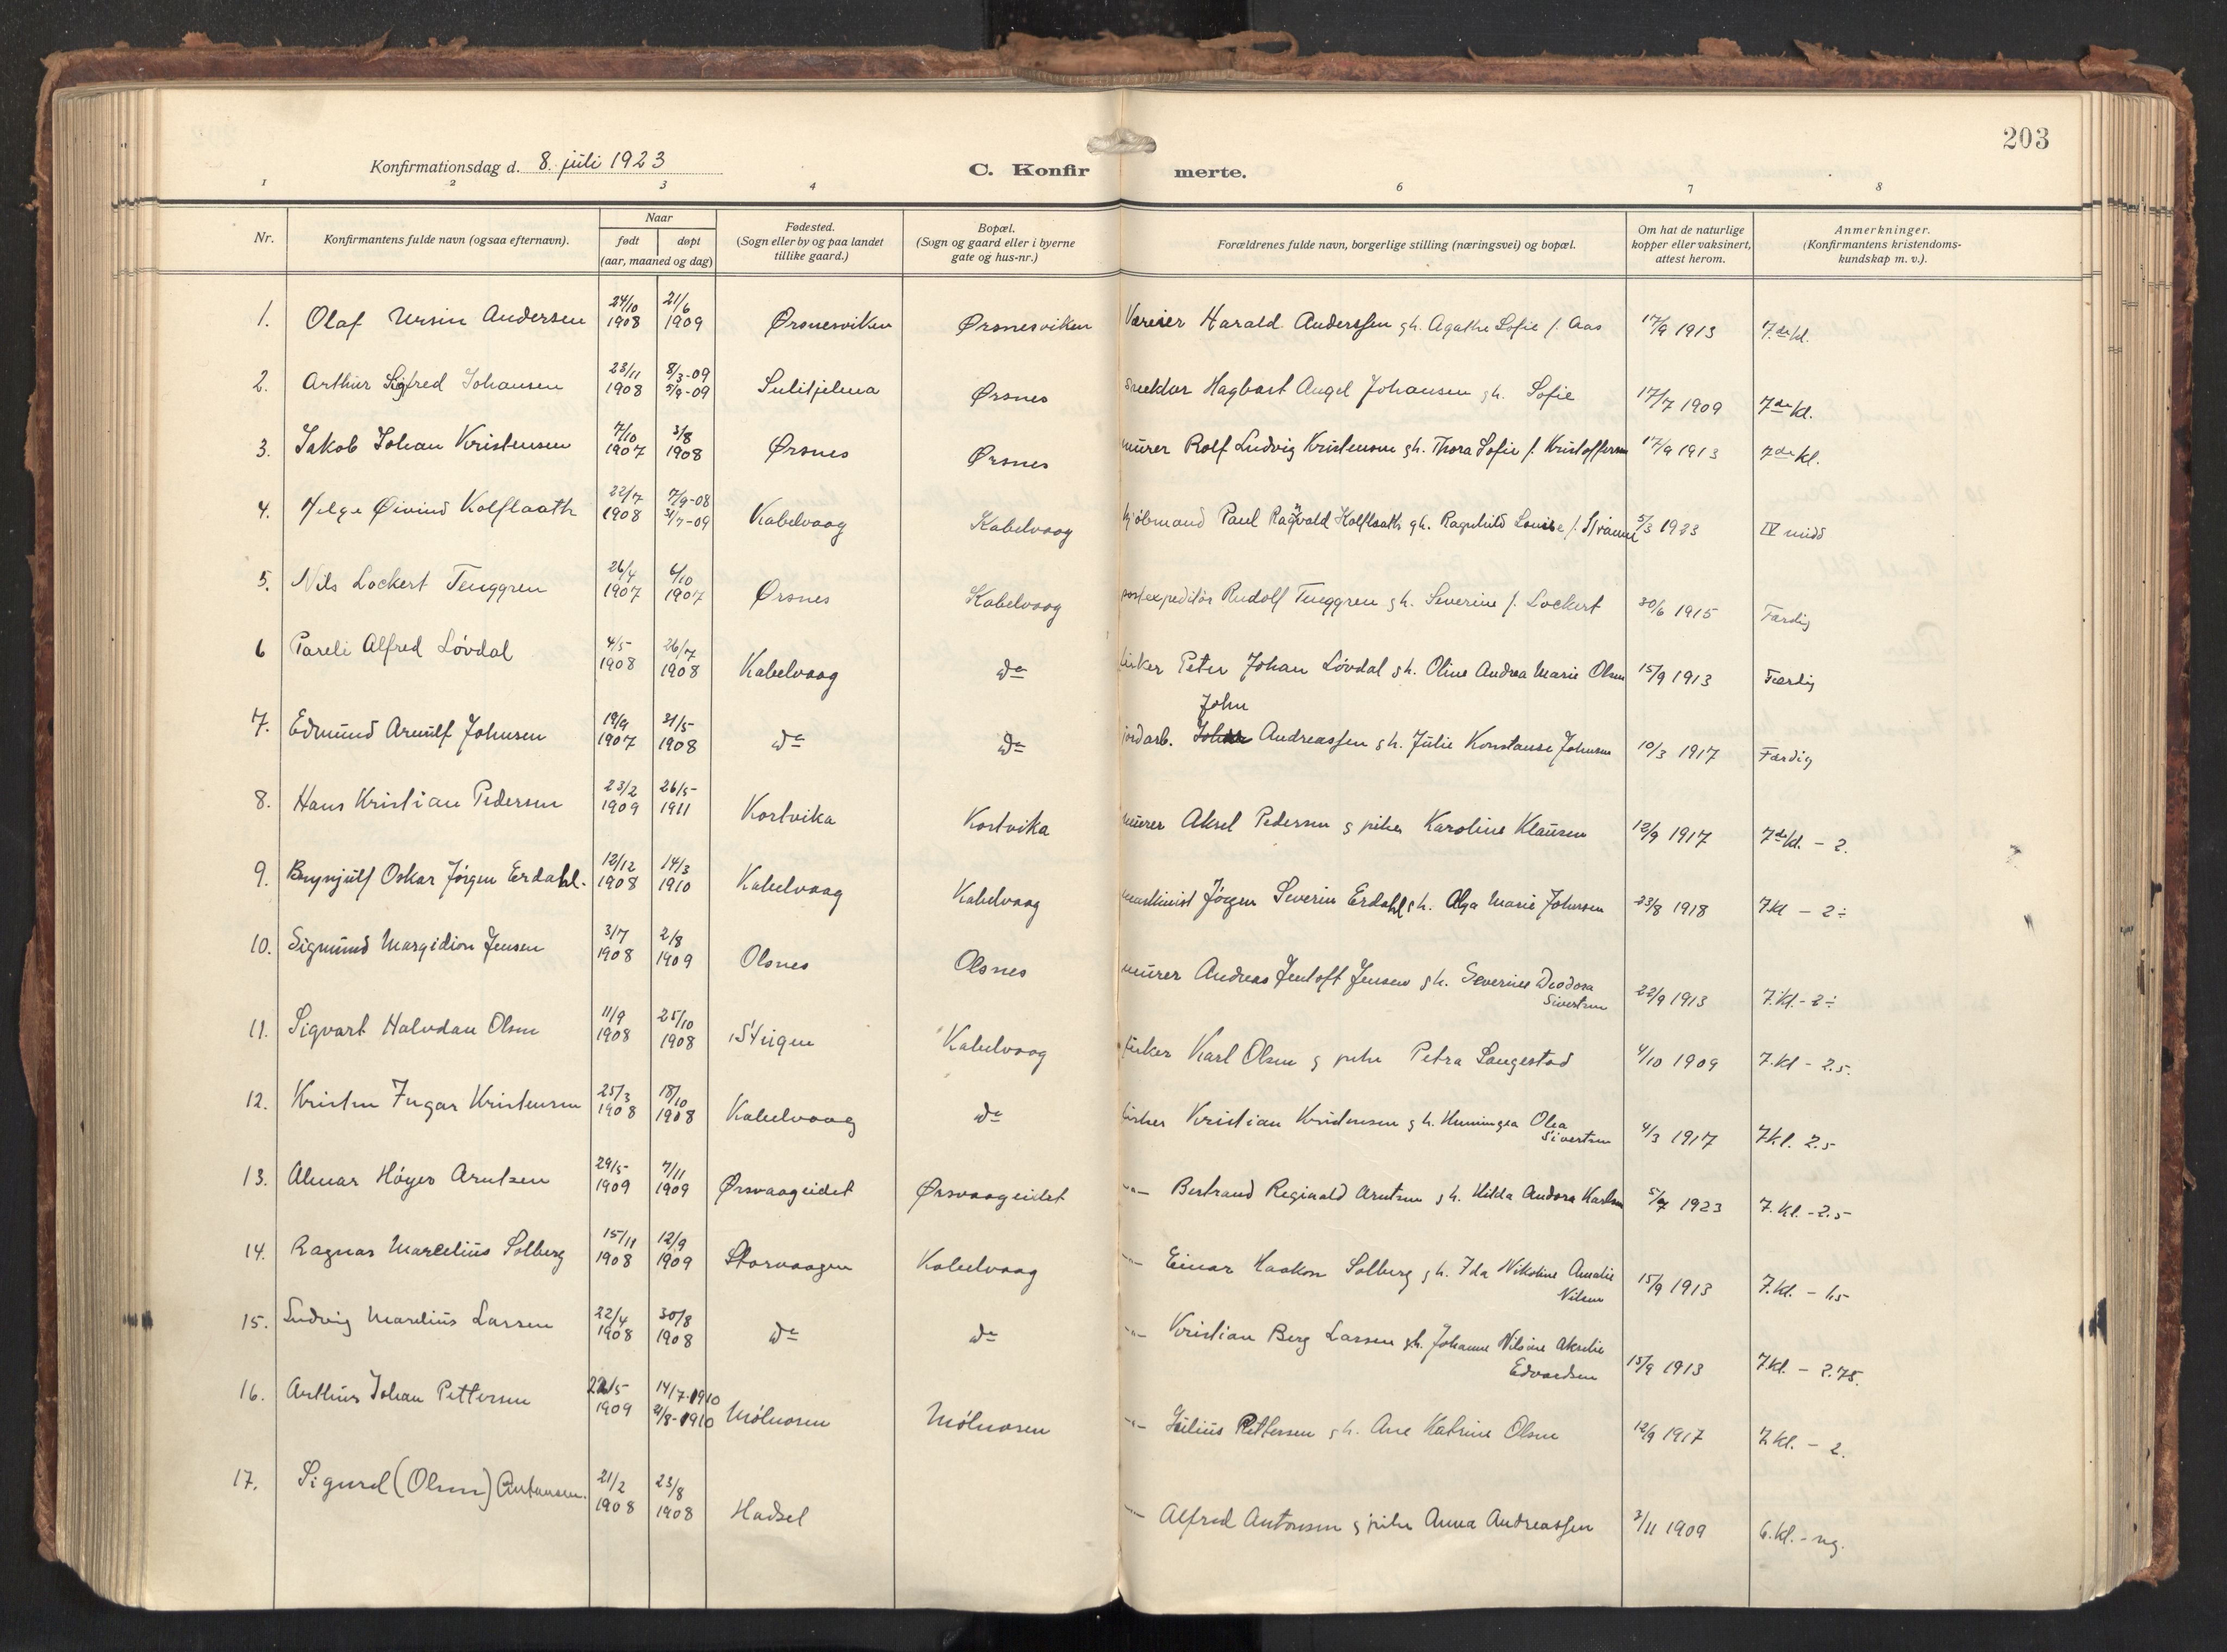 203
Konfirmationsdag d. 8. juli 1923
C. Konfirmerte.
1 2 3 4 6 7 8
Nr.
Konfirmantens fulde navn (ogsaa efternavn).
Naar
født døpt
(aar, maaned og dag)
Fødested.
(Sogn eller by og paa landet
tillike gaard.)
Bopæl.
(Sogn og gaard eller i byerne
gate og hus-nr.)
Forældrenes fulde navn, borgerlige stilling (næringsvei) og bopæl.
Om hat de naturlige
kopper eller vaksinert,
attest herom.
Anmerkninger.
(Konfirmantens kristendoms-
kundskap m. v.).
1. Olaf Ursin Andersen 24/10 1908 21/6 1909 Ørsnesviken Ørsnesviken Harald Anderssen gh. Agathe Sofie f. Aas 17/9 1913 7de kl.
2. Arthur Sigfred Johansen 23/11 1908 8/3-09 5/9-09 Sulitjelma Ørsnes Hagbart Angel Johansen gh. Sofie 17/7 1909 7de kl.
3. Jakob Johan Kristensen 7/10 1907 3/8 1908 Ørsnes Ørsnes murer Rolf Ludvig Kristensen gh. Thora Sofie f. Kristoffersen 17/9 1913 7de kl.
4. Helge Øivind Kolflaath 22/7 1908 7/9-08 31/7-09 Kabelvaag Kabelvaag kjøbmand Paul Ragnvald Kolflaath gh. Ragnhild Louise f. 5/3 1923 IV midd
5. Nils Lockert Tenggren 26/4 1907 6/10 1907 Ørsnes Kabelvaag postexpeditør Rudolf Tenggren gh. Severine f. Lockert 30/6 1915 Færdig
6 Pareli Alfred Løvdal 4/5 1908 26/7 1908 Kabelvaag do fisker Peter Johan Løvdal gh. Oline Andrea Marie Olsen 15/9 1913 Færdig
John
7. Edmund Arnulf Johnsen 19/9 1907 31/5 1908 do do jordarb. Andreassen gh. Julie Konstanse Johnsen 10/3 1917 Færdig
8. Hans Kristian Pedersen 23/2 1909 26/5 1911 Kortvika Kortvika murer Aksel Pedersen g pike Karoline Klausen 12/9 1917 7de kl. - 2.
9. Brynjulf Oskar Jørgen Erdahl. 12/12 1908 14/3 1910 Kabelvaag Kabelvaag maskinist Jørgen Severin Erdahl gh. Olga Marie Johnsen 23/8 1918 7 kl - 2÷
10. Sigmund Margidion Jensen 3/7 1908 2/8 1909 Olsnes Olsnes murer Andreas Jentoft Jensen gh. Severine Deodora
Sivertsen 22/9 1913 7. kl. - 2÷
11. Sigvart Halvdan Olsen 11/9 1908 25/10 1908 Kabelvaag fisker Karl Olsen g pike Petra Langestad 4/10 1909 7. kl - 2.5.
12. Kristen Ingar Kristensen 25/3 1908 18/10 1908 Kabelvaag do fisker Kristian Kristensen gh. Henningea Olea
Sivertsen 4/3 1917 7 kl. 2.5
13. Almar Høyer Arntsen 29/5 1909 7/11 1909 Ørsvaageidet Ørsvaageidet -"- Bertrand Reginald Arntsen gh. Hilda Andora Karlsen 5/7 1923 7. kl. - 2.5
14. Ragnar Marcelius Solberg 15/11 1908 12/9 1909 Storvaagen Kabelvaag -"- Einar Haakon Solberg gh. Ida Nikoline Amalie
Nilsen 15/9 1913 7. kl. - 1.5
15. Ludvig Marelius Larsen 22/4 1908 30/8 1908 do do -"- Kristian Berg Larsen gh. Johanne Nilsine Akselie
Edvardsen 15/9 1913 7 kl. - 2.75.
16. Arthur Johan Pettersen 22/5 1909 14/7-1910 21/8-1910 Mølnosen Mølnosen -"- Julius Pettersen gh. Ane Katrine Olsen 12/9 1917 7. kl. - 2.
17. Sigurd (Olsen) Antonsen. 21/2 1908 23/8 1908 Hadsel -"- Alfred Antonsen g pike Anna Andreassen 3/11 1909 6. kl. - ng.